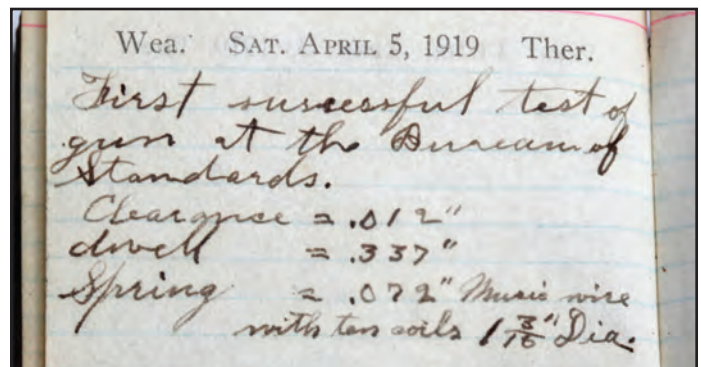 Wea. SAT. APRIL 5, 1919 Ther.
First successful test of
gun at the Bureau of
Standards.
Clearance = .012"
dwell = .337"
Spring = .072" Music wire
with ten coils 1 3/16" Dia.